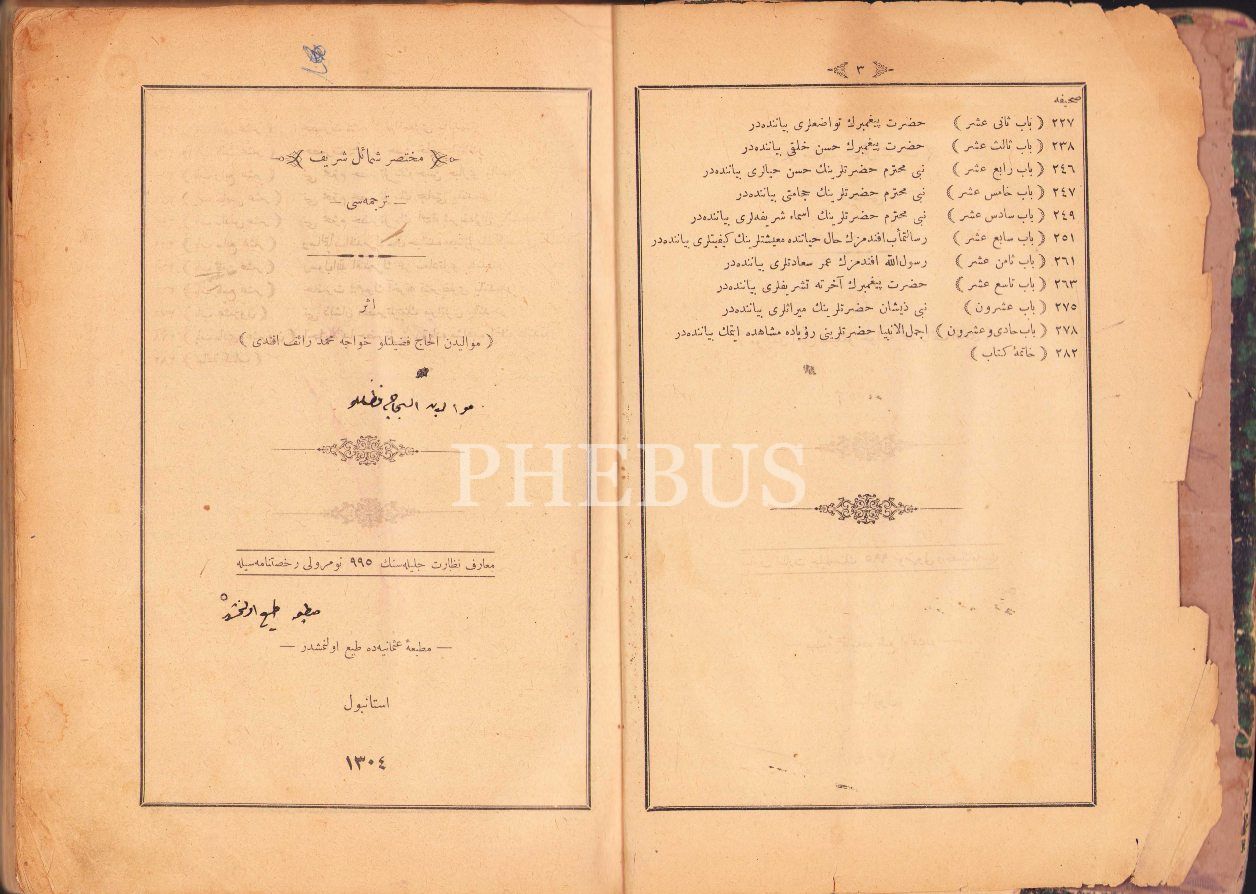 ٣
صحیفه
٢٢٧ ( باب ثانی عشر ) حضرت پیغمبرك تواضعلری بیاننده‌در
٢٣٨ ( باب ثالث عشر ) حضرت پیغمبرك حسن خلقی بیاننده‌در
٢٤٦ ( باب رابع عشر ) نبی محترم حضرتلرینك حسن حیالری بیاننده‌در
٢٤٧ ( باب خامس عشر ) نبی محترم حضرتلرینك حجامتی بیاننده‌در
٢٤٩ ( باب سادس عشر ) نبی محترم حضرتلرینك اسماء شریفه‌لری بیاننده‌در
٢٥١ ( باب سابع عشر ) رسالتمأب افندمزك حال حیاتنده معیشتلرینك کیفیتلری بیاننده‌در
٢٦١ ( باب ثامن عشر ) رسول‌الله افندمزك عمر سعادتلری بیاننده‌در
٢٦٣ ( باب تاسع عشر ) حضرت پیغمبرك آخرته تشریفلری بیاننده‌در
٢٧٥ ( باب عشرون ) نبی ذیشان حضرتلرینك میراثلری بیاننده‌در
٢٧٨ ( باب حادی و عشرون ) اجمل الانبیا حضرتلرینی رؤیاده مشاهده ایتمك بیاننده‌در
٢٨٢ ( خاتمهٔ كتاب )
مختصر شمائل شریف
ترجمه‌سی
اثر
( موالیدن الحاج فضیلتلو خواجه محمد رائف افندی )
موالیدن الحاج فضیلتلو
معارف نظارت جلیله‌سنك ٩٩٥ نومرولی رخصتنامه‌سیله
طبع اولنمشدر
— مطبعهٔ عثمانیه‌ده طبع اولنمشدر —
استانبول
١٣٠٤
PHEBUS